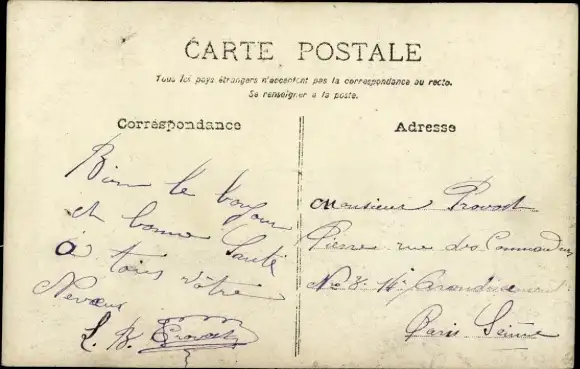 CARTE POSTALE
Tous les pays étrangers n'acceptent pas la correspondance au recto.
Se renseigner à la poste.
Correspondance
Bien le bonjour
et bonne Santé
à tous vôtre
Neveux
L. B. Provost
Adresse
Monsieur Provost
Pierre rue des
No 8. Arrondissement
Paris Seine